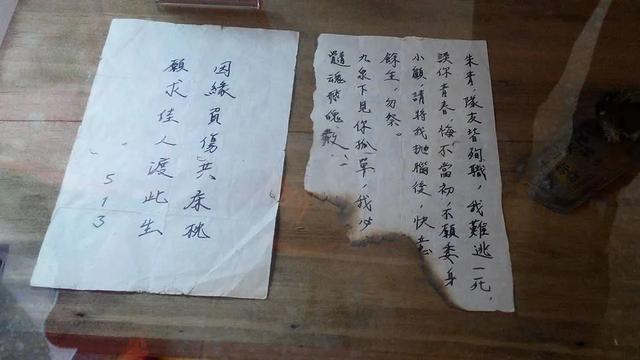 因緣負傷共床
願求佳人渡此生
513
朱青,隊友皆殉職,我難逃一死,
誤你青春,悔不當初,亦願委身
小顧,請將我拋腦後,快意
餘生,勿祭。
九泉下見你孤單,我必
魂飛魄散